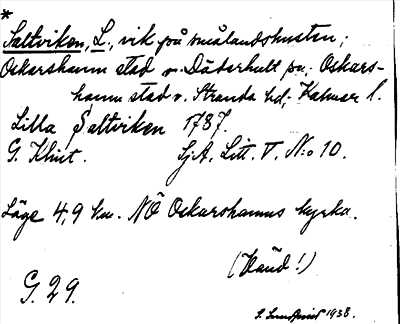 *
Saltviken, L., vik på smålandskusten;
Oskarshamn stad o. Döderhult sn; Oskars-
hamn stad o. Stranda hd; Kalmar l.
Lilla Saltviken 1787.
G. Klint. SjA. Litt. V. N:o 10.
Läge 4,9 km. NÖ Oskarshamns kyrka.
(Händ!)
G. 29.
S. Lundqvist 1938.